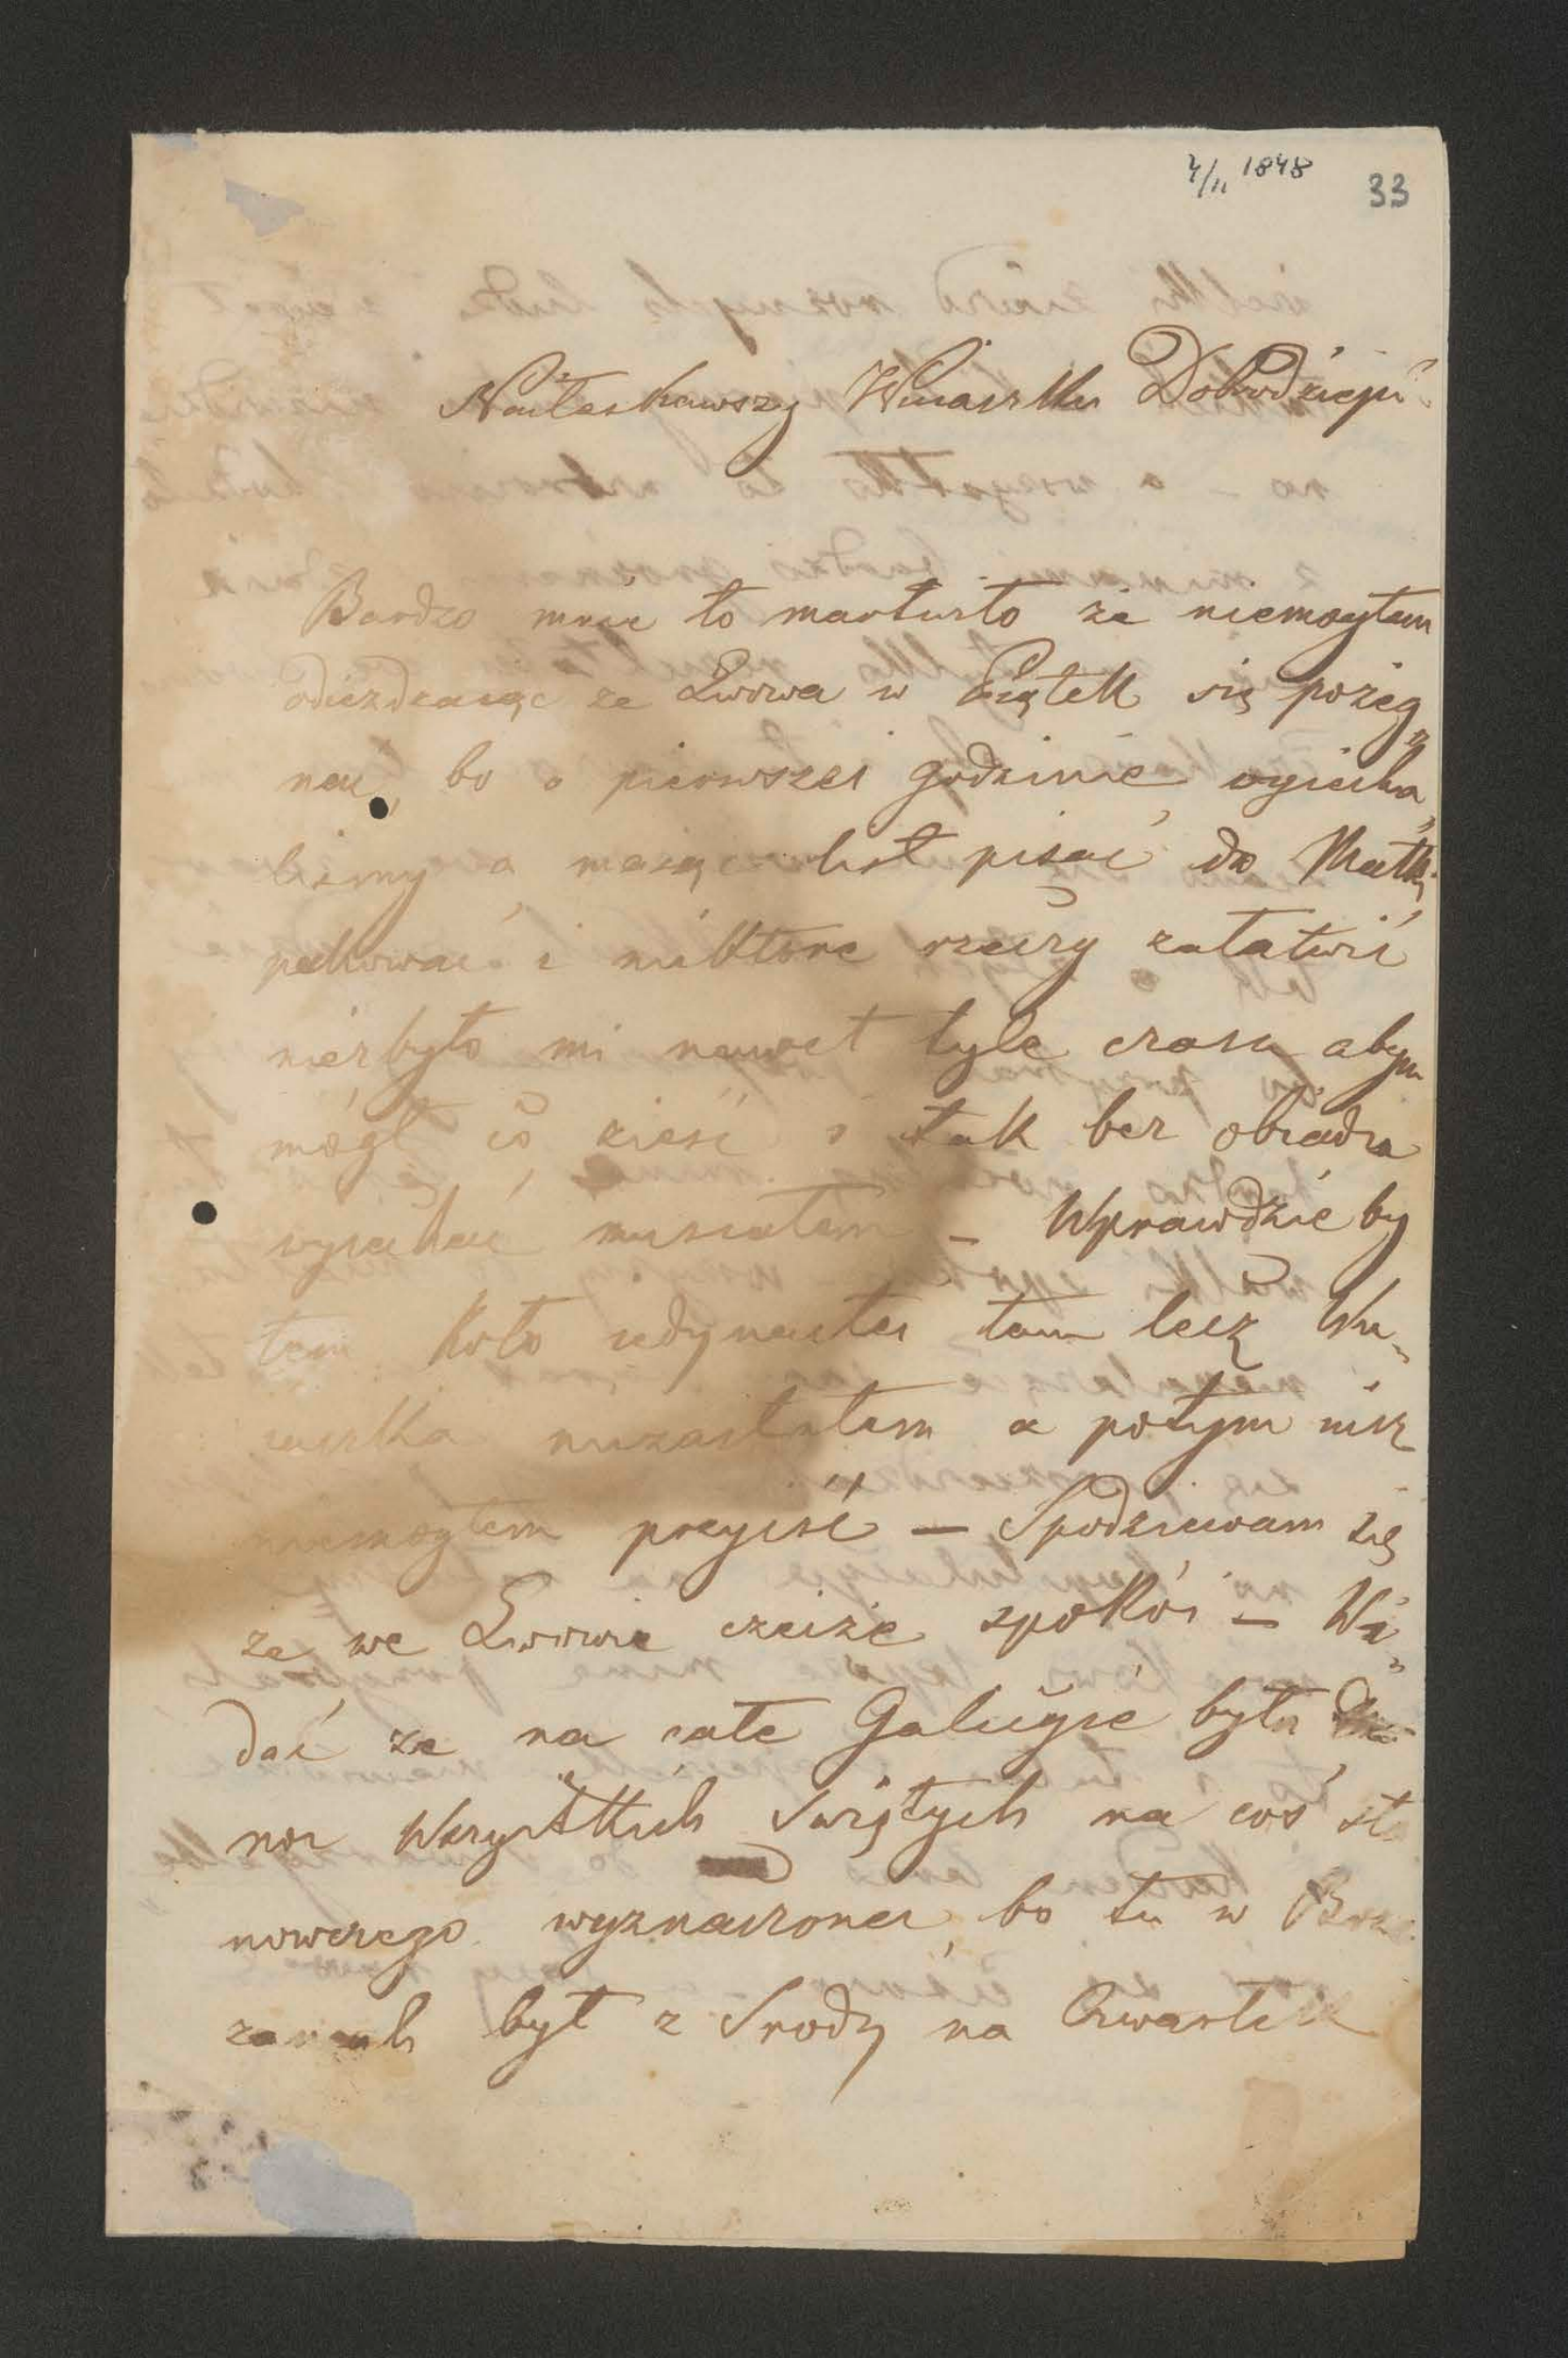 4/11 1848
33
Naiłaskawszy Wuiaszku Dobrodzieju
Bardzo mnie to martwiło że niemogłem
odieżdzaiąc ze Lwowa w Piątek się pożeg„
nać, bo o pierwszei godzinie wyiecha„
liśmy a maiąc list pisać do Matki,
pakować i niektóre rzeczy załatwić
niezbyło mi nawet tyle czasu abym
mógł co zieść i tak bez obiadu
wyiechać musiałem – Wprawdzie by
łem koło iedynastei tam lecz Wu„
iaszka niezastałem a potym iusz
niemogłem przyiść – Spodziewam się
że we Lwowie czeiże spokói – Wi„
dać że na całe Galicyie była
noc Wszystkich Swiętych na coś sta
nowczego wyznaczonei, bo tu w Brze
zanach był z Srody na Czwartek